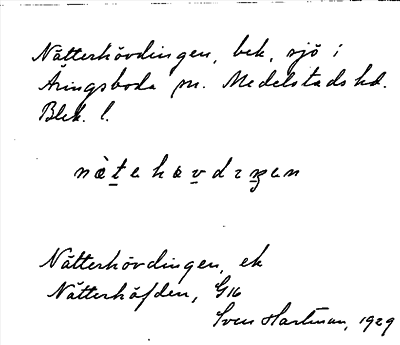 Nätterhövdingen, bek, sjö i
Åringsboda sn. Medelstads hd.
Blek. l.
nätehævdiŋen
Nätterhövdingen, ek
Nätterhöfden, G16
Sven Hartman, 1929